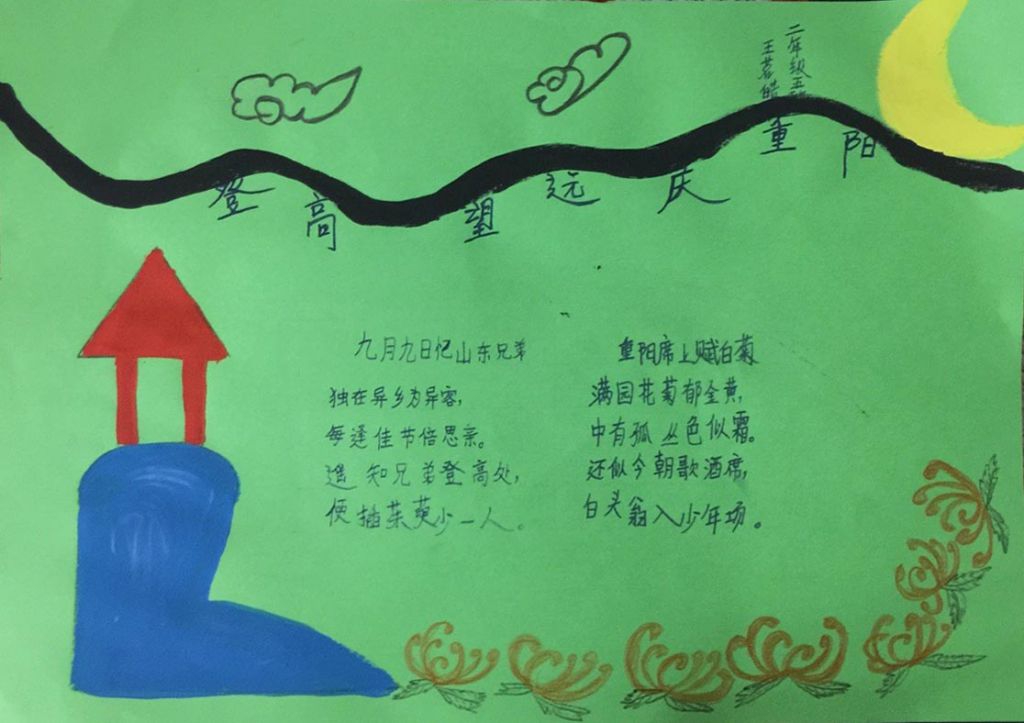 二年级五
王
登高望远庆重阳
九月九日忆山东兄弟
独在异乡为异客,
每逢佳节倍思亲。
遥知兄弟登高处,
便插茱萸少一人。
重阳席上赋白菊
满园花菊郁金黄,
中有孤丛色似霜。
还似今朝歌酒席,
白头翁入少年场。